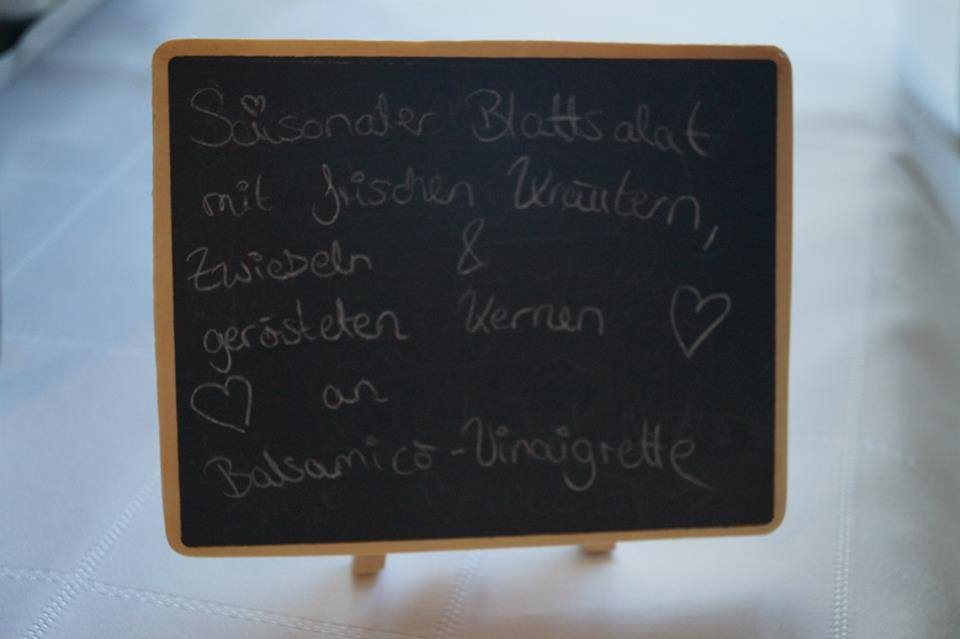 Saisonaler Blattsalat
mit frischen Kräutern,
Zwiebeln &
gerösteten Kernen ♡
♡ an
Balsamico-Vinaigrette